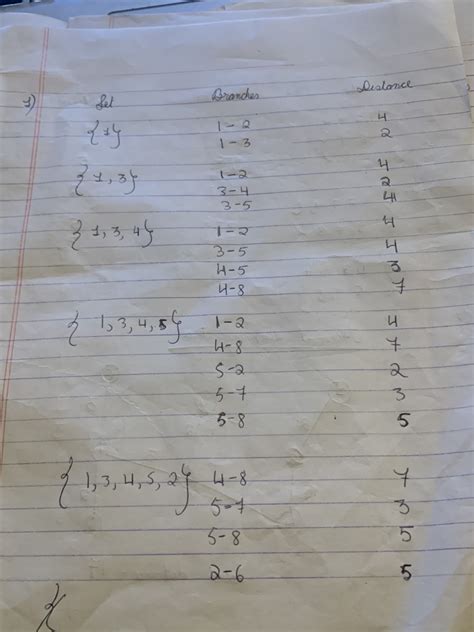 1) Set Branches Distance
{1} 1-2 4
1-3 2
{1,3} 1-2 4
3-4 2
3-5 4
{1,3,4} 1-2 4
3-5 4
4-5 3
4-8 7
{1,3,4,5} 1-2 4
4-8 7
5-2 2
5-7 3
5-8 5
{1,3,4,5,2} 4-8 7
5-7 3
5-8 5
2-6 5
{